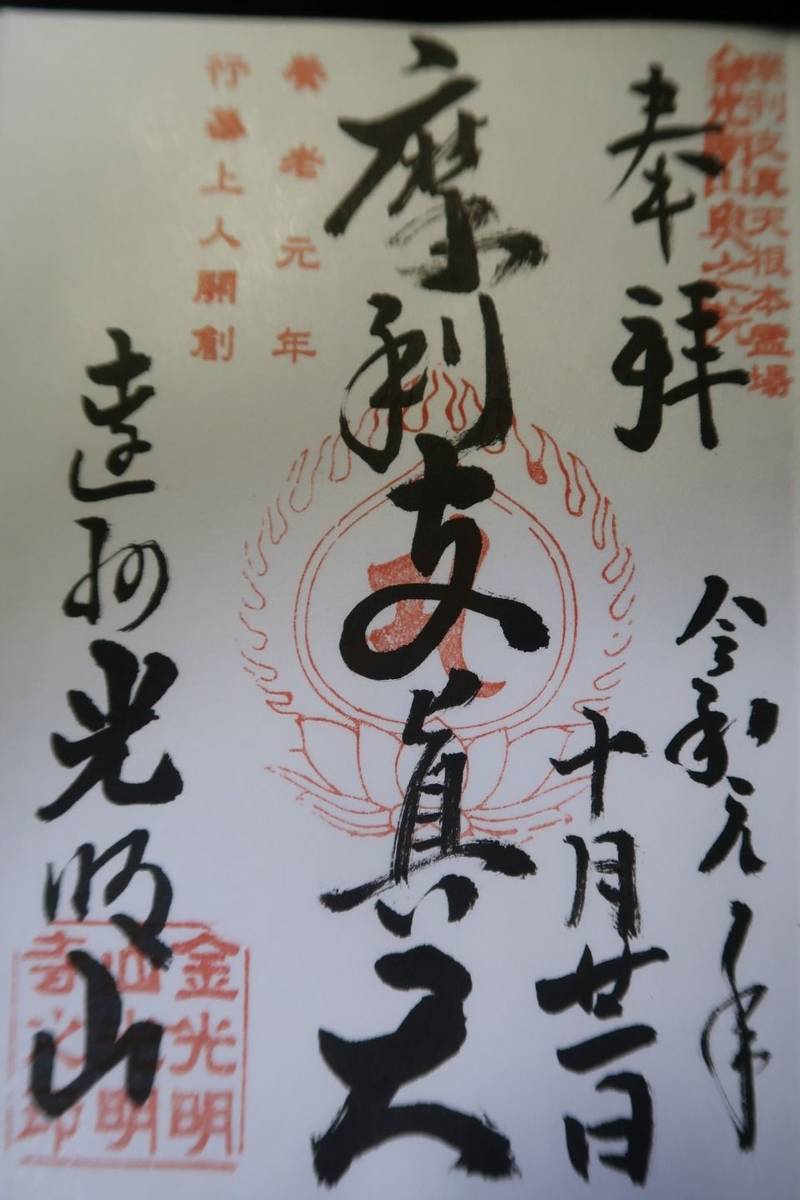 摩利支真天根本霊場
金光明山奥之院
奉拝
令和元年
十月廿一日
摩利支真天
養老元年
行基上人開創
遠州光明山
金光明
山光明
寺之印